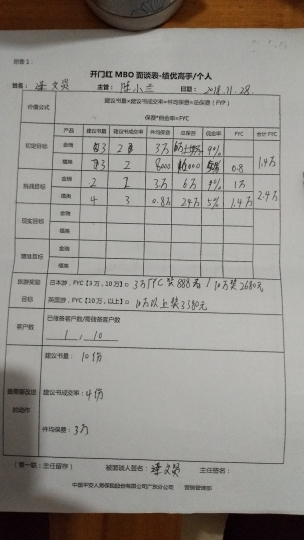 附着1：
开门红 MBO 面谈表-绩优高手/个人
姓名： 主管：陈小兰 日期：2018.11.28.
价值公式 建议书量×建议书成交率×件均保费=总保费（FYP）
保费*佣金率=FYC
产品 建议书量 建议书成交率 件均保费 总保费 佣金率 FYC 合计 FYC
初定目标 金瑞 3 2 3万 9%
1.4万
福美 3 2 8000 0.8
挑战目标 金瑞 2 2 3万 6万 9% 1万
2.4万
福美 4 3 0.8万 24万 5% 1.4万
现实目标 金瑞
福美
金瑞
福美
旅游奖励 日本游，FYC【3万，10万】□ 3万FYC奖888元 / 10万奖2680元
目标 英国游，FYC【10万，以上】□ 10万以上奖3380元
客户数 已储备客户数/需储备客户数
1，10
建议书量：10份
最需要改进 建议书成交率：4份
的动作
件均保费：3万
（曾一联：主任留存） 被面谈人签名： 主任签名：
中国平安人寿保险股份有限公司广东分公司 营销管理部